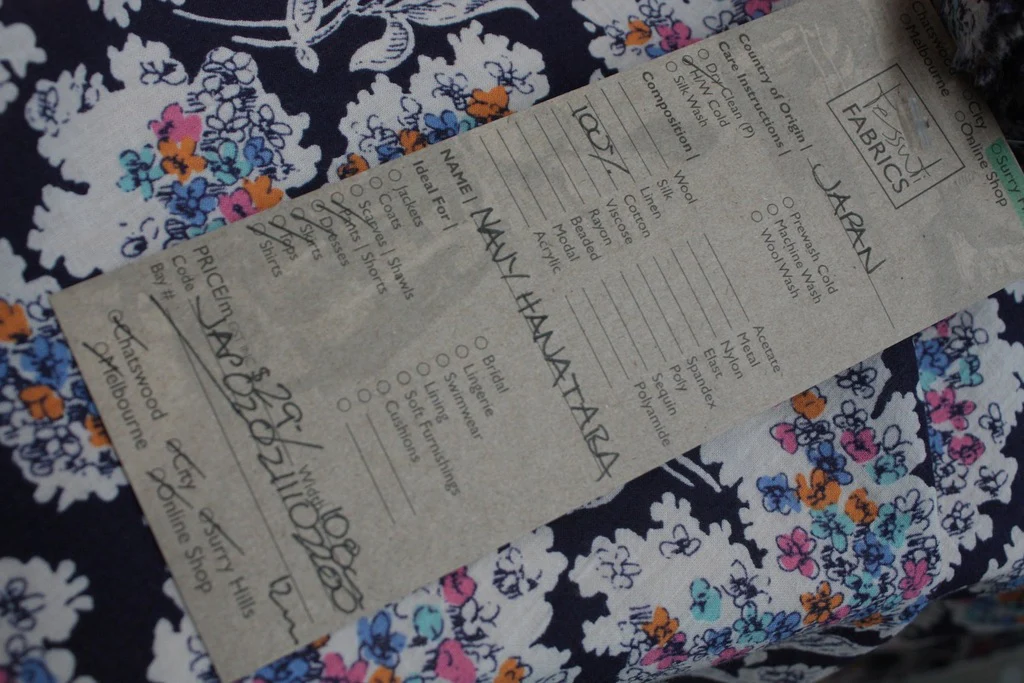 Tessuti
FABRICS
Chatswood City Surry H
Melbourne Online Shop
Country of Origin | JAPAN
Care Instructions |
Dry Clean (P) Prewash Cold
H/W Cold Machine Wash
Silk Wash Wool Wash
Composition |
Wool Acetate
Silk Metal
Linen Nylon
100% Cotton Elast
Viscose Spandex
Rayon Poly
Beaded Sequin
Modal Polyamide
Acrylic
NAME | NAVY HANATABA
Ideal For |
Jackets Bridal
Coats Lingerie
Scarves | Shawls Swimwear
Pants | Shorts Lining
Dresses Soft Furnishings
Skirts Cushions
Tops
Shirts
PRICE/m $29/ Width 108
Code JAP020211110200
Bay # 12m
Chatswood City Surry Hills
Melbourne Online Shop